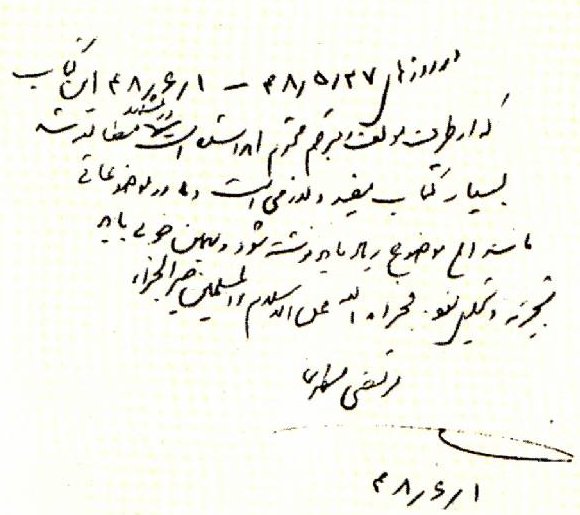 در روزهای ۴۸/۵/۲۷ – ۴۸/۶/۱ این کتاب
که از طرف مؤلف و مترجم محترم اهدا شده است مطالعه شد
بسیار کتاب مفید و لازمی است و در موضوعاتی
مانند این موضوع زیاد باید نوشته شود و به همین خوبی باید
تجزیه و تحلیل شود فجزاه الله عن الاسلام و المسلمین خیر الجزاء
مرتضی مطهری
۴۸/۶/۱